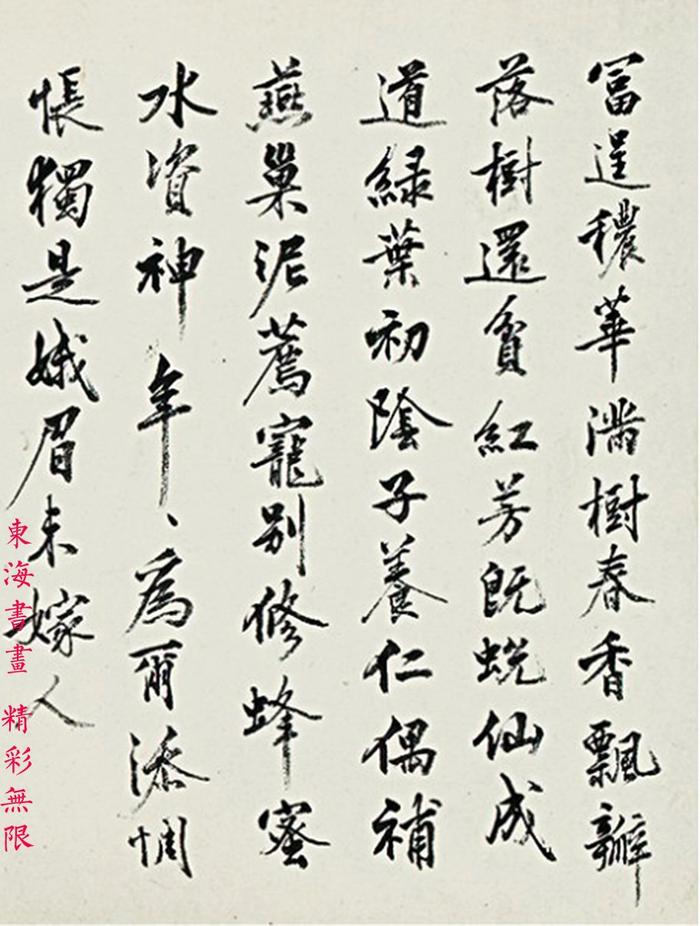 富逞穠華滿樹春香飄瓣
落樹還貧紅芳既蛻仙成
道綠葉初陰子養仁偶補
燕巢泥薦寵別修蜂蜜
水資神年、為爾添惆
悵獨是娥眉未嫁人
東海書畫 精彩無限